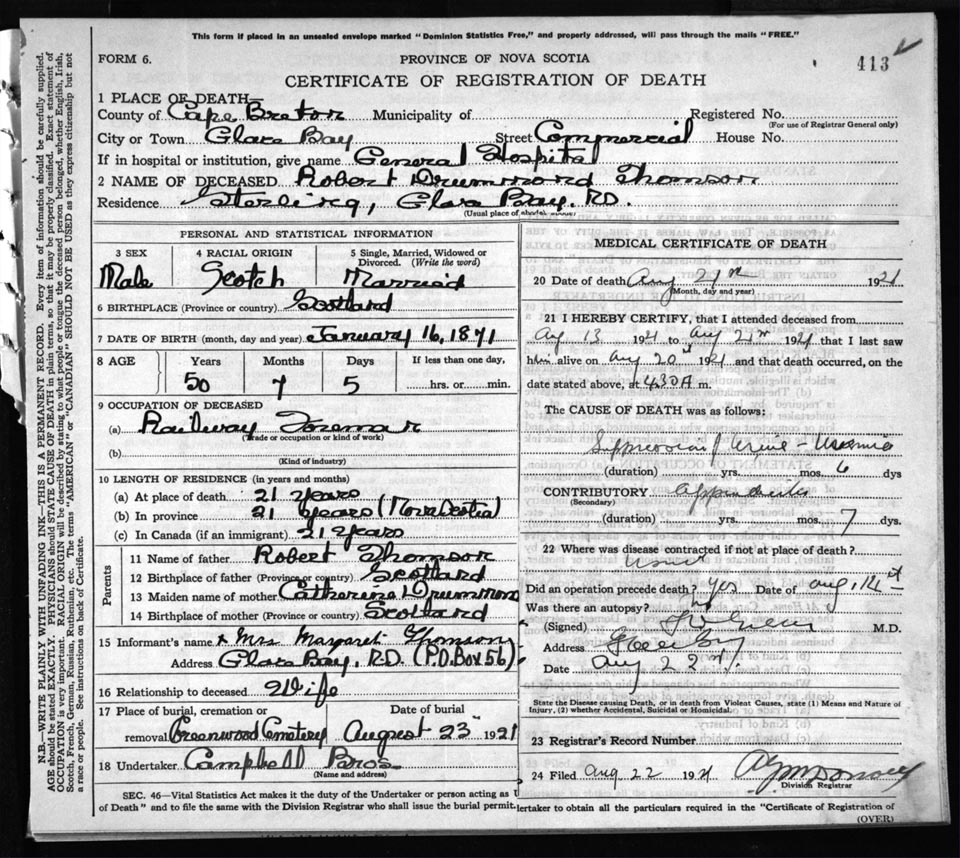 This form if placed in an unsealed envelope marked "Dominion Statistics Free," and properly addressed, will pass through the mails "FREE."
FORM 6.
PROVINCE OF NOVA SCOTIA
413
CERTIFICATE OF REGISTRATION OF DEATH
1 PLACE OF DEATH—
County of Cape Breton Municipality of Registered No.
(For use of Registrar General only)
City or Town Glace Bay Street Commercial House No.
If in hospital or institution, give name General Hospital
2 NAME OF DECEASED Robert Drummond Thomson
Residence Sterling, Glace Bay. RD.
(Usual place of abode)
PERSONAL AND STATISTICAL INFORMATION
3 SEX 4 RACIAL ORIGIN 5 Single, Married, Widowed or Divorced. (Write the word)
Male Scotch Married
6 BIRTHPLACE (Province or country) Scotland
7 DATE OF BIRTH (month, day and year) January 16, 1871
8 AGE Years Months Days If less than one day,
50 7 5 hrs. or min.
9 OCCUPATION OF DECEASED
(a) Railway Foreman
(Trade or occupation or kind of work)
(b)
(Kind of industry)
10 LENGTH OF RESIDENCE (in years and months)
(a) At place of death 21 years
(b) In province 21 years (Nova Scotia)
(c) In Canada (if an immigrant) 21 years
Parents
11 Name of father Robert Thomson
12 Birthplace of father (Province or country) Scotland
13 Maiden name of mother Catherine Drummond
14 Birthplace of mother (Province or country) Scotland
15 Informant's name x Mrs. Margaret Thomson
Address Glace Bay, R.D. (P.O. Box 56)
16 Relationship to deceased Wife
17 Place of burial, cremation or Date of burial
removal Greenwood Cemetery August 23 1921
18 Undertaker Campbell Bros
(Name and address)
MEDICAL CERTIFICATE OF DEATH
20 Date of death Aug 21st 1921
(Month, day and year)
21 I HEREBY CERTIFY, that I attended deceased from
Aug 13 1921 to Aug 21st 1921 that I last saw
him alive on Aug 20th 1921 and that death occurred, on the
date stated above, at 4.30 A m.
The CAUSE OF DEATH was as follows:
Suppression of Urine - Uraemia
(duration) yrs. mos. 6 dys
CONTRIBUTORY Appendicitis
(Secondary)
(duration) yrs. mos. 7 dys.
22 Where was disease contracted if not at place of death?
Did an operation precede death? Yes Date of Aug 14
Was there an autopsy? no
(Signed) M.D.
Address Glace Bay
Date Aug 22
State the Disease causing Death, or in death from Violent Causes, state (1) Means and Nature of Injury, (2) whether Accidental, Suicidal or Homicidal.
23 Registrar's Record Number
24 Filed Aug 22 1921
Division Registrar
SEC. 46—Vital Statistics Act makes it the duty of the Undertaker or person acting as U
of Death" and to file the same with the Division Registrar who shall issue the burial permit.
dertaker to obtain all the particulars required in the "Certificate of Registration of
(OVER)
N.B.—WRITE PLAINLY WITH UNFADING INK—THIS IS A PERMANENT RECORD. Every item of information should be carefully supplied.
AGE should be stated EXACTLY. PHYSICIANS should STATE CAUSE OF DEATH in plain terms, so that it may be properly classified. Exact statement of
OCCUPATION is very important. RACIAL ORIGIN will be described by stating to what people or tongue the deceased person belonged, whether English, Irish,
Scotch, French, German, Russian, Ruthenian, etc. The terms "AMERICAN" or "CANADIAN" SHOULD NOT BE USED as they express citizenship but not
a race or people. See instructions on back of Certificate.